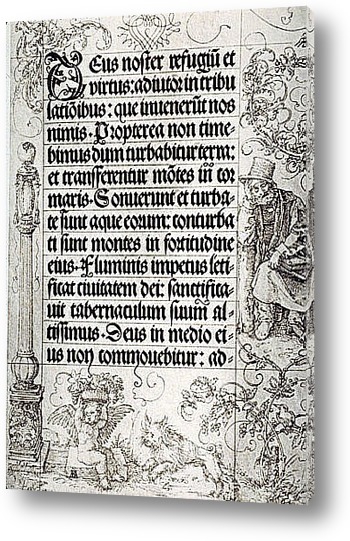 DEus noster refugiũ et
virtus: adiutor in tribu
latiõibus: que inuenerũt nos
nimis. Propterea non time-
bimus dum turbabitur terra:
et transferentur mõtes in cor
maris. Sonuerunt et turba-
te sunt aque eorum: conturba
ti sunt montes in fortitudine
eius. Fluminis impetus leti-
ficat ciuitatem dei: sanctifica-
uit tabernaculum suum al-
tissimus. Deus in medio e
ius non commouebitur: ad-